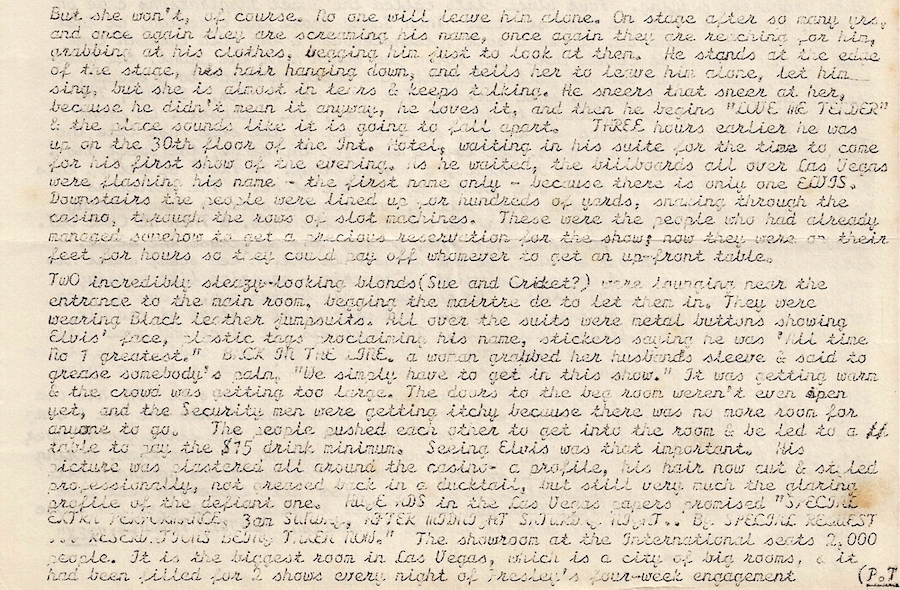 But she won't, of course. No one will leave him alone. On stage after so many yrs,
and once again they are screaming his name, once again they are reaching for him,
grabbing at his clothes, begging him just to look at them. He stands at the edge
of the stage, his hair hanging down, and tells her to leave him alone, let him
sing, but she is almost in tears & keeps talking. He sneers that sneer at her,
because he didn't mean it anyway, he loves it, and then he begins "LOVE ME TENDER"
& the place sounds like it is going to fall apart. THREE hours earlier he was
up on the 30th floor of the Int. Hotel, waiting in his suite for the time to come
for his first show of the evening. As he waited, the billboards all over Las Vegas
were flashing his name - the first name only - because there is only one ELVIS.
Downstairs the people were lined up for hundreds of yards, snaking through the
casino, through the rows of slot machines. These were the people who had already
managed somehow to get a precious reservation for the show; now they were on their
feet for hours so they could pay off whomever to get an up-front table.
TWO incredibly sleazy-looking blonds(Sue and Cricket?) were lounging near the
entrance to the main room, begging the mairtre de to let them in. They were
wearing Black leather jumpsuits. All over the suits were metal buttons showing
Elvis' face, plastic tags proclaiming his name, stickers saying he was 'All time
No 1 greatest." BACK IN THE LINE. a woman grabbed her husbands sleeve & said to
grease somebody's palm, "We simply have to get in this show." It was getting warm
& the crowd was getting too large. The doors to the beg room weren't even open
yet, and the Security men were getting itchy because there was no more room for
anyone to go. The people pushed each other to get into the room & be led to a
table to pay the $15 drink minimum. Seeing Elvis was that important. His
picture was plastered all around the casino- a profile, his hair now cut & styled
professionally, not greased back in a ducktail, but still very much the glaring
profile of the defiant one. HUGE ADS in the Las Vegas papers promised "SPECIAL
EXTRA PERFORMANCE, 3am SUNDAY, AFTER MIDNIGHT SATURDAY NIGHT.. By SPECIAL REQUEST
... RESERVATIONS BEING TAKEN NOW." The showroom at the International seats 2,000
people. It is the biggest room in Las Vegas, which is a city of big rooms, & it
had been filled for 2 shows every night of Presley's four-week engagement (P.T